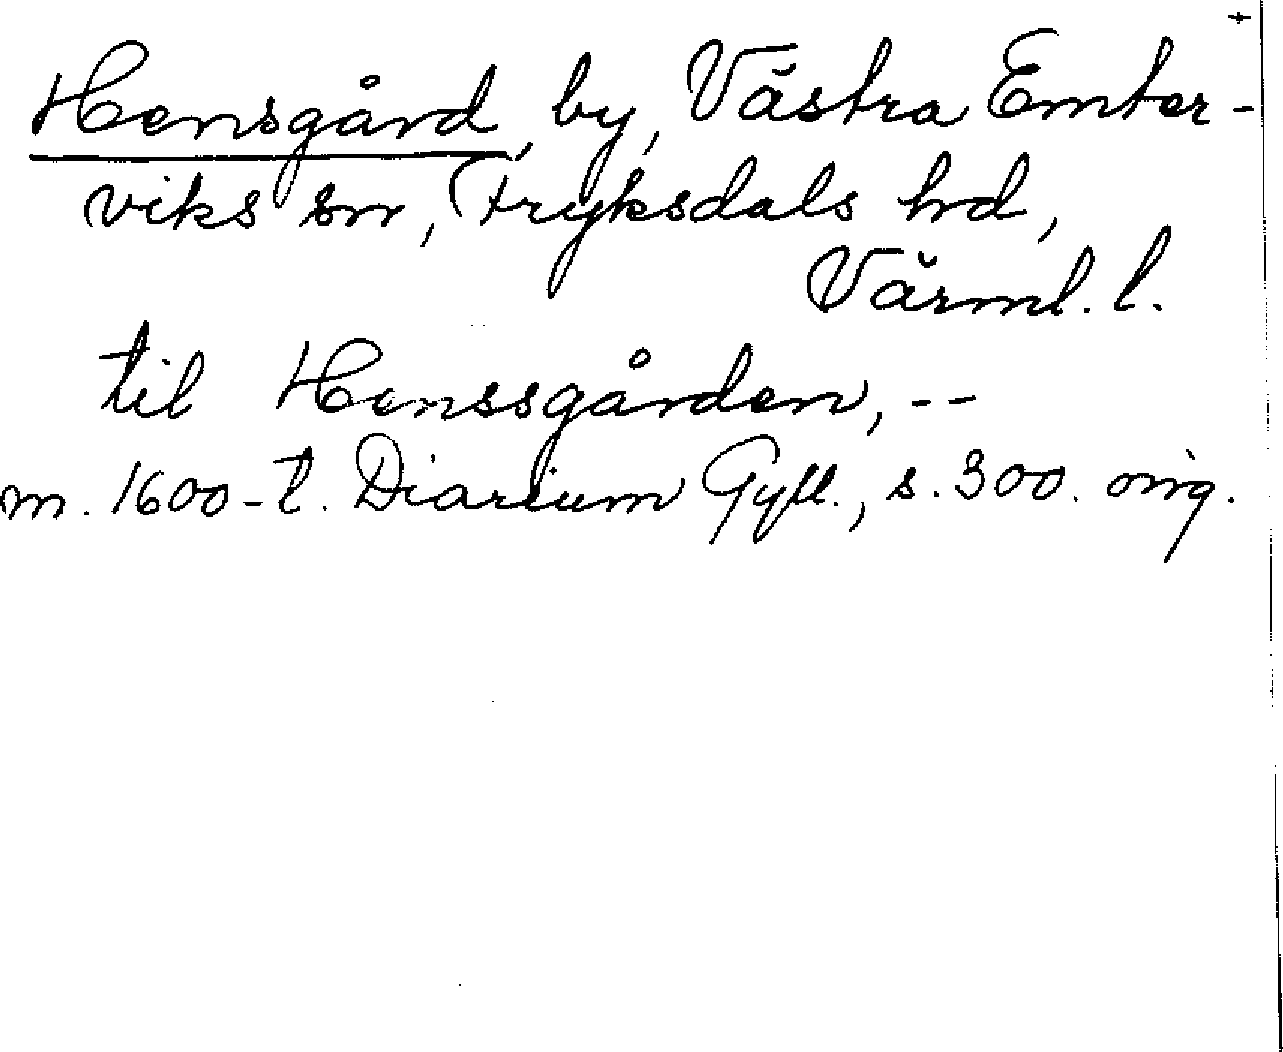 +
Hensgård, by, Västra Emter-
viks sn, Fryksdals hd,
Värml. l.
til Henssgården, --
m. 1600-t. Diarium Gyll., s. 300. orig.